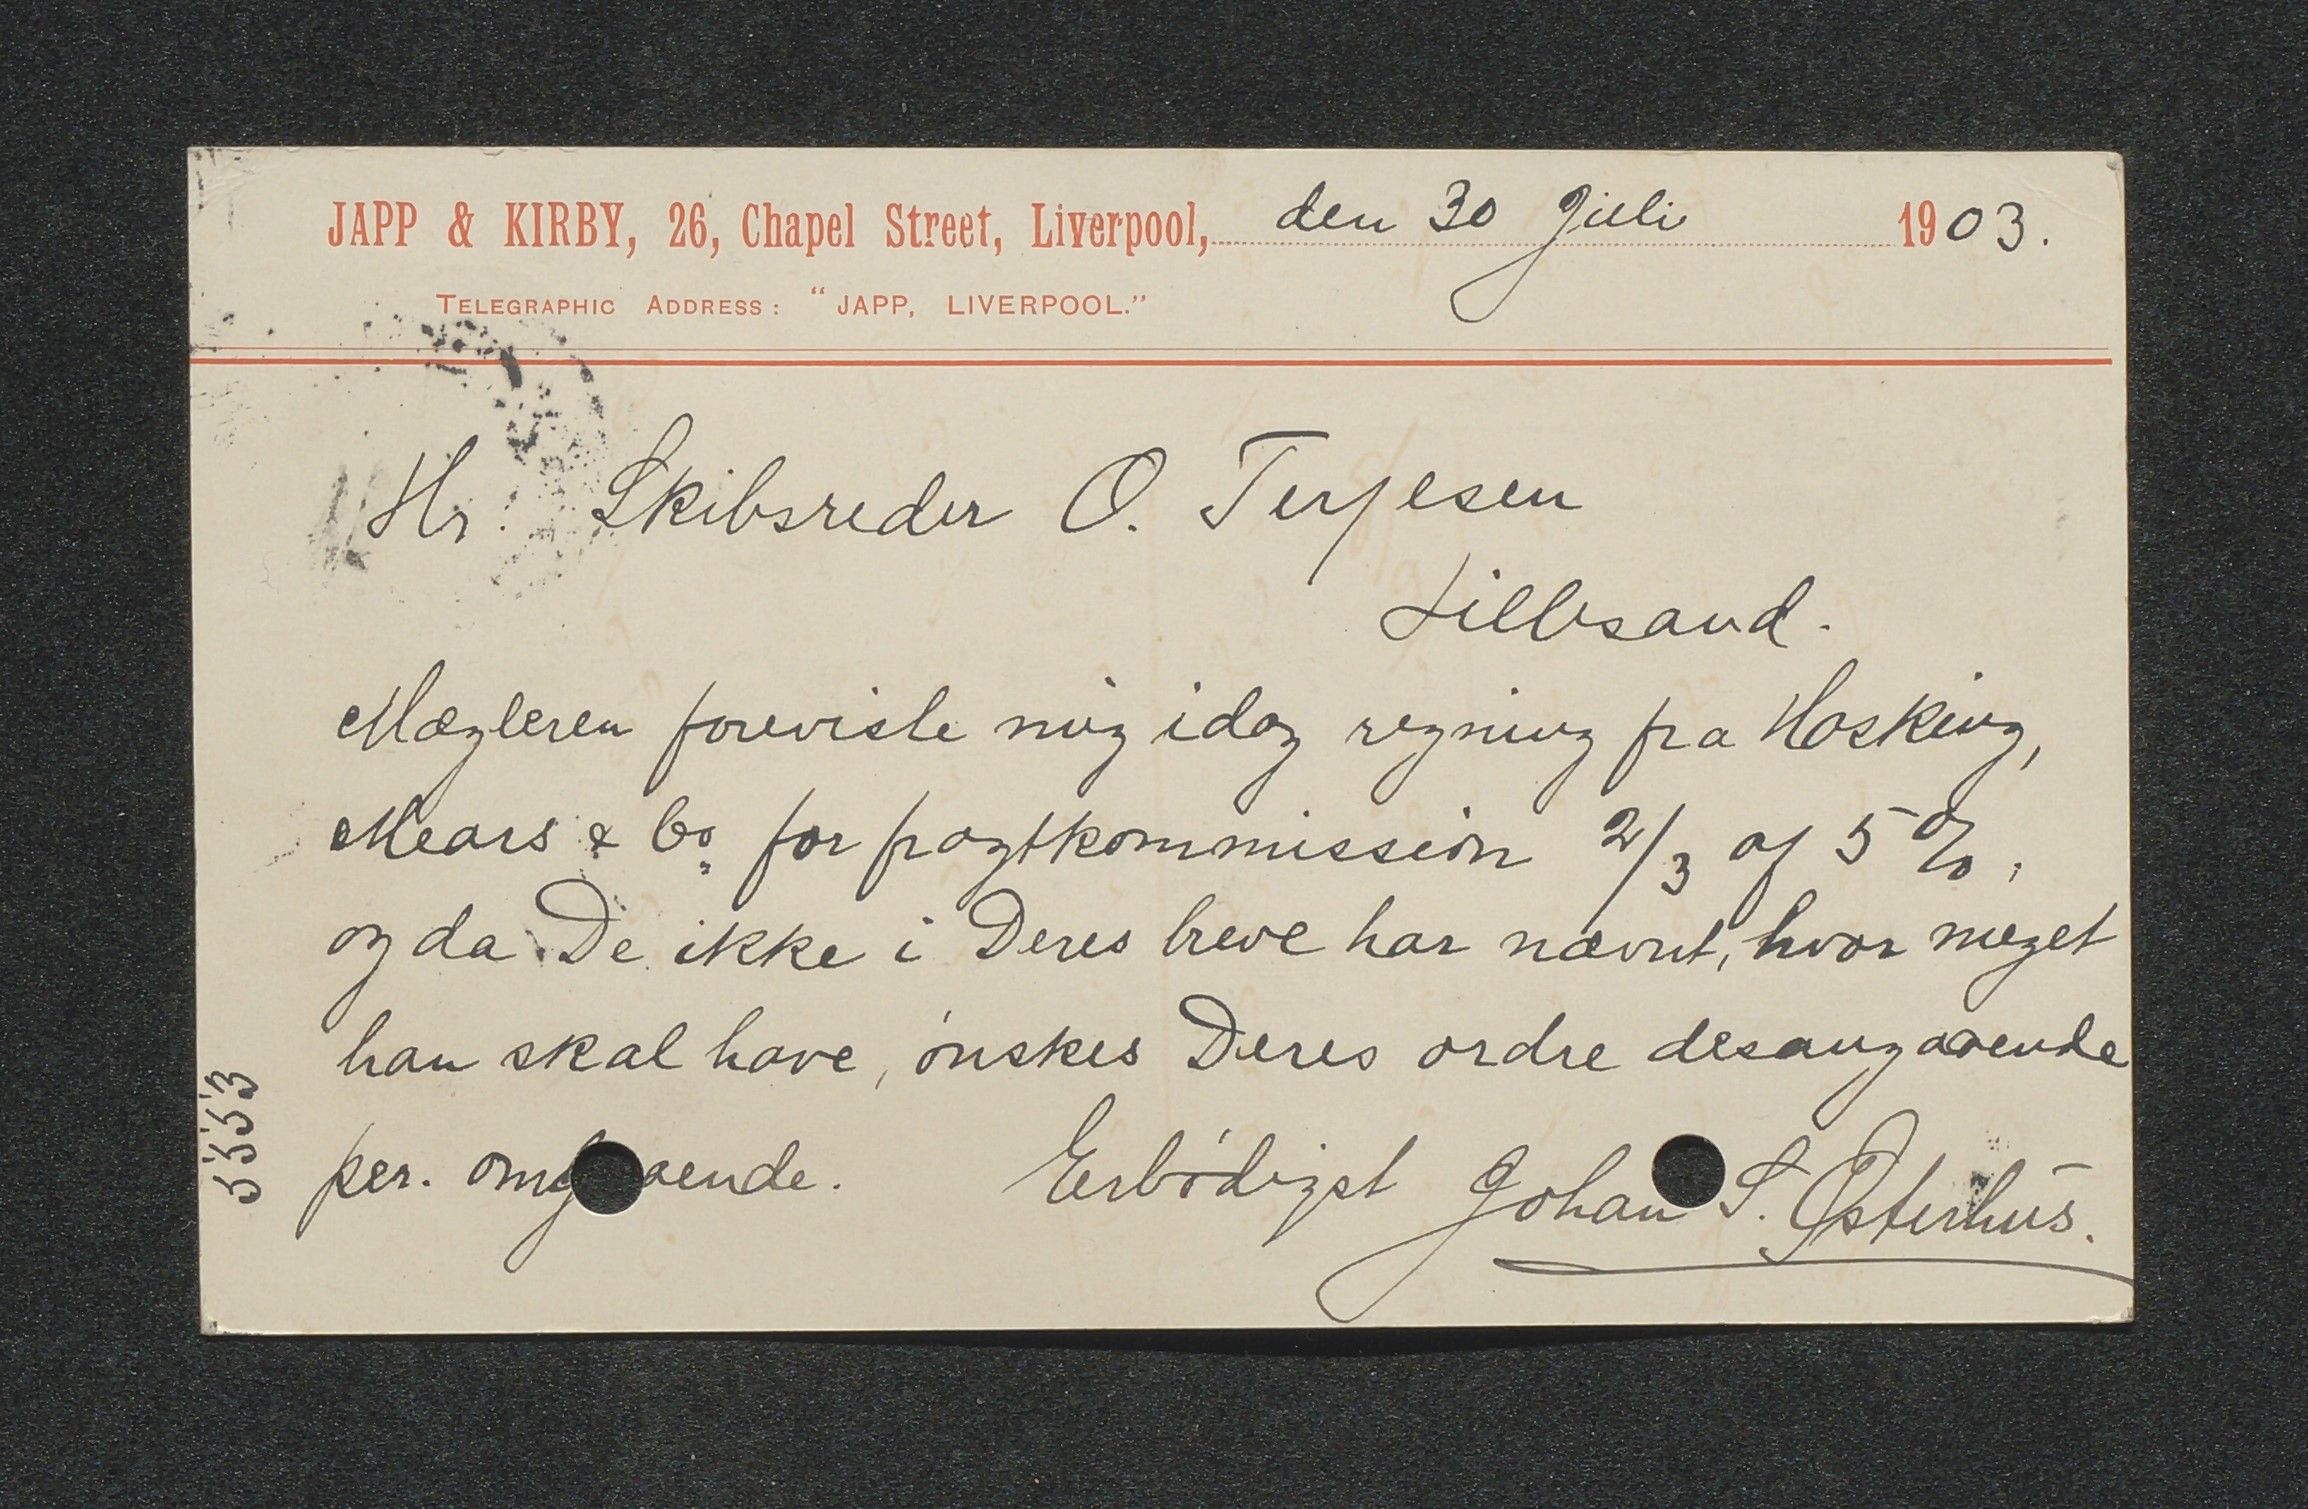 JAPP & KIRBY, 26, Chapel Street, Liverpool, den 30 Juli 1903.
TELEGRAPHIC ADDRESS: "JAPP, LIVERPOOL."
Hr. Skibsreder O. Terjesen
Lillesand.
Mægleren foreviste mig idag regning fra Hosking,
Mears & Co. for fragtkommission 2/3 af 5%,
og da De ikke i Deres breve har nævnt, hvor meget
han skal have, ønskes Deres ordre desangaaende
per. omgaaende. Erbødigst Johan S. Østerhus.